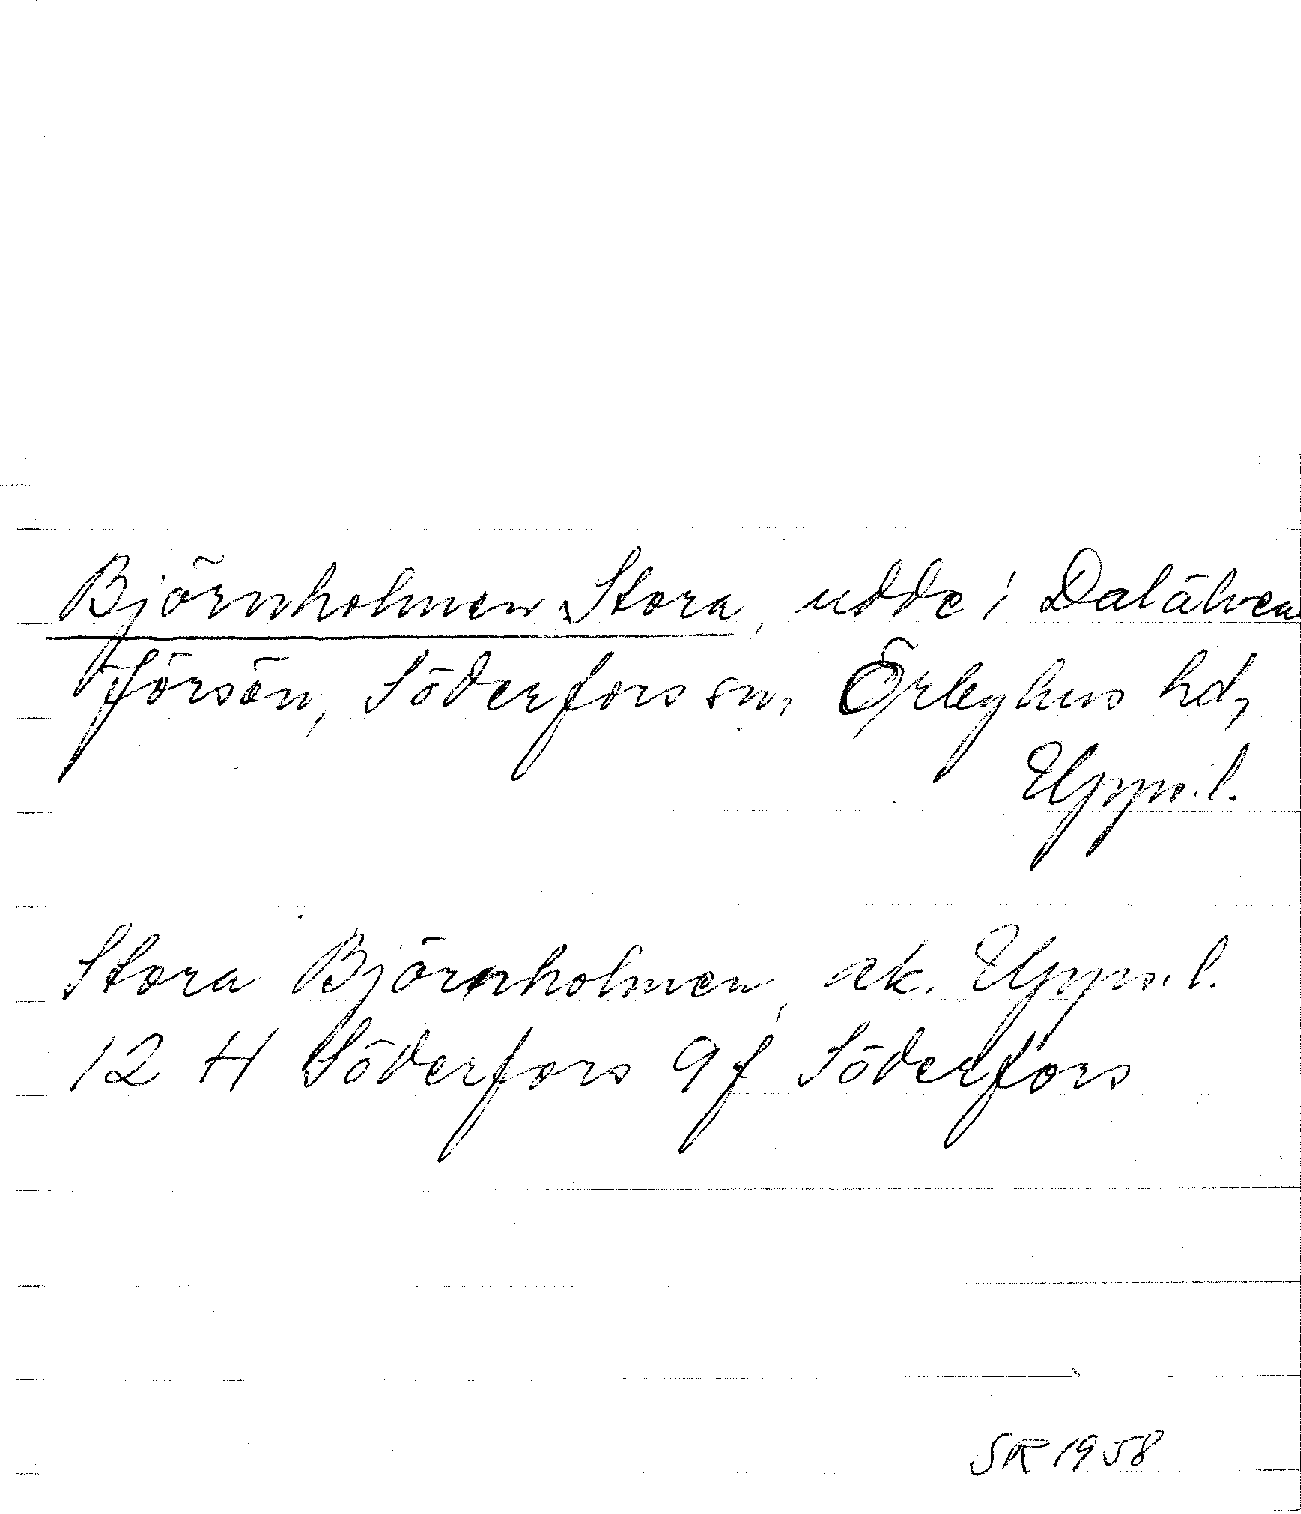 Björnholmen, Stora, udde i Dalälven
Jörsön, Söderfors sn, Örbyhus hd,
Upps. l.
Stora Björnholmen, ek. Upps. l.
12 H Söderfors 9 f Söderfors
SR 1958